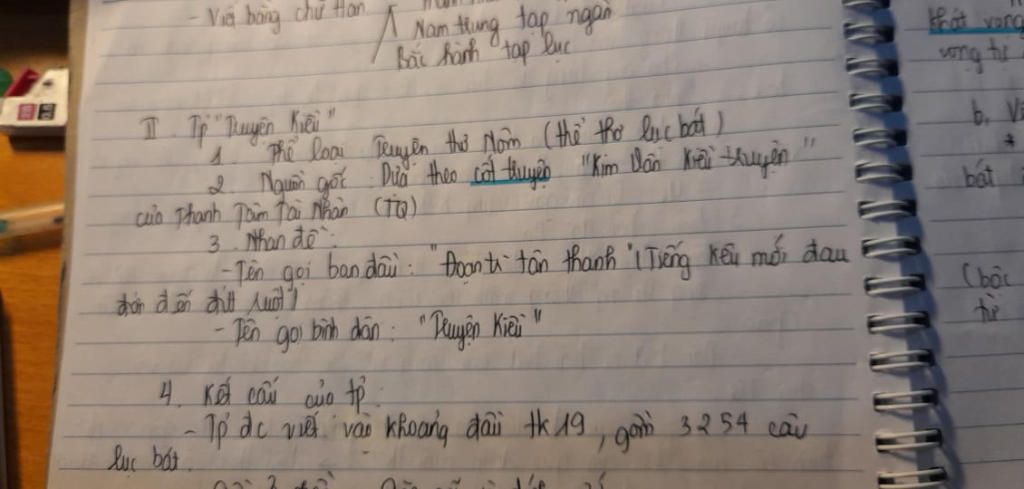 - Viết bằng chữ Hán
Nam trung tạp ngâm
Bắc hành tạp lục
II. Tp "Truyện Kiều"
1. Thể loại: Truyện thơ Nôm (thể thơ lục bát)
2. Nguồn gốc: Dựa theo cốt truyện "Kim Vân Kiều truyện"
của Thanh Tâm Tài Nhân (TQ)
3. Nhan đề:
- Tên gọi ban đầu: "Đoạn trường tân thanh" (Tiếng kêu mới đau
đớn đến đứt ruột)
- Tên gọi bình dân: "Truyện Kiều"
4. Kết cấu của tp:
- Tp đc viết vào khoảng đầu tk 19, gồm 3254 câu
lục bát.
khát vọng
vọng tự
b, Vi
*
bát
(bộc
từ